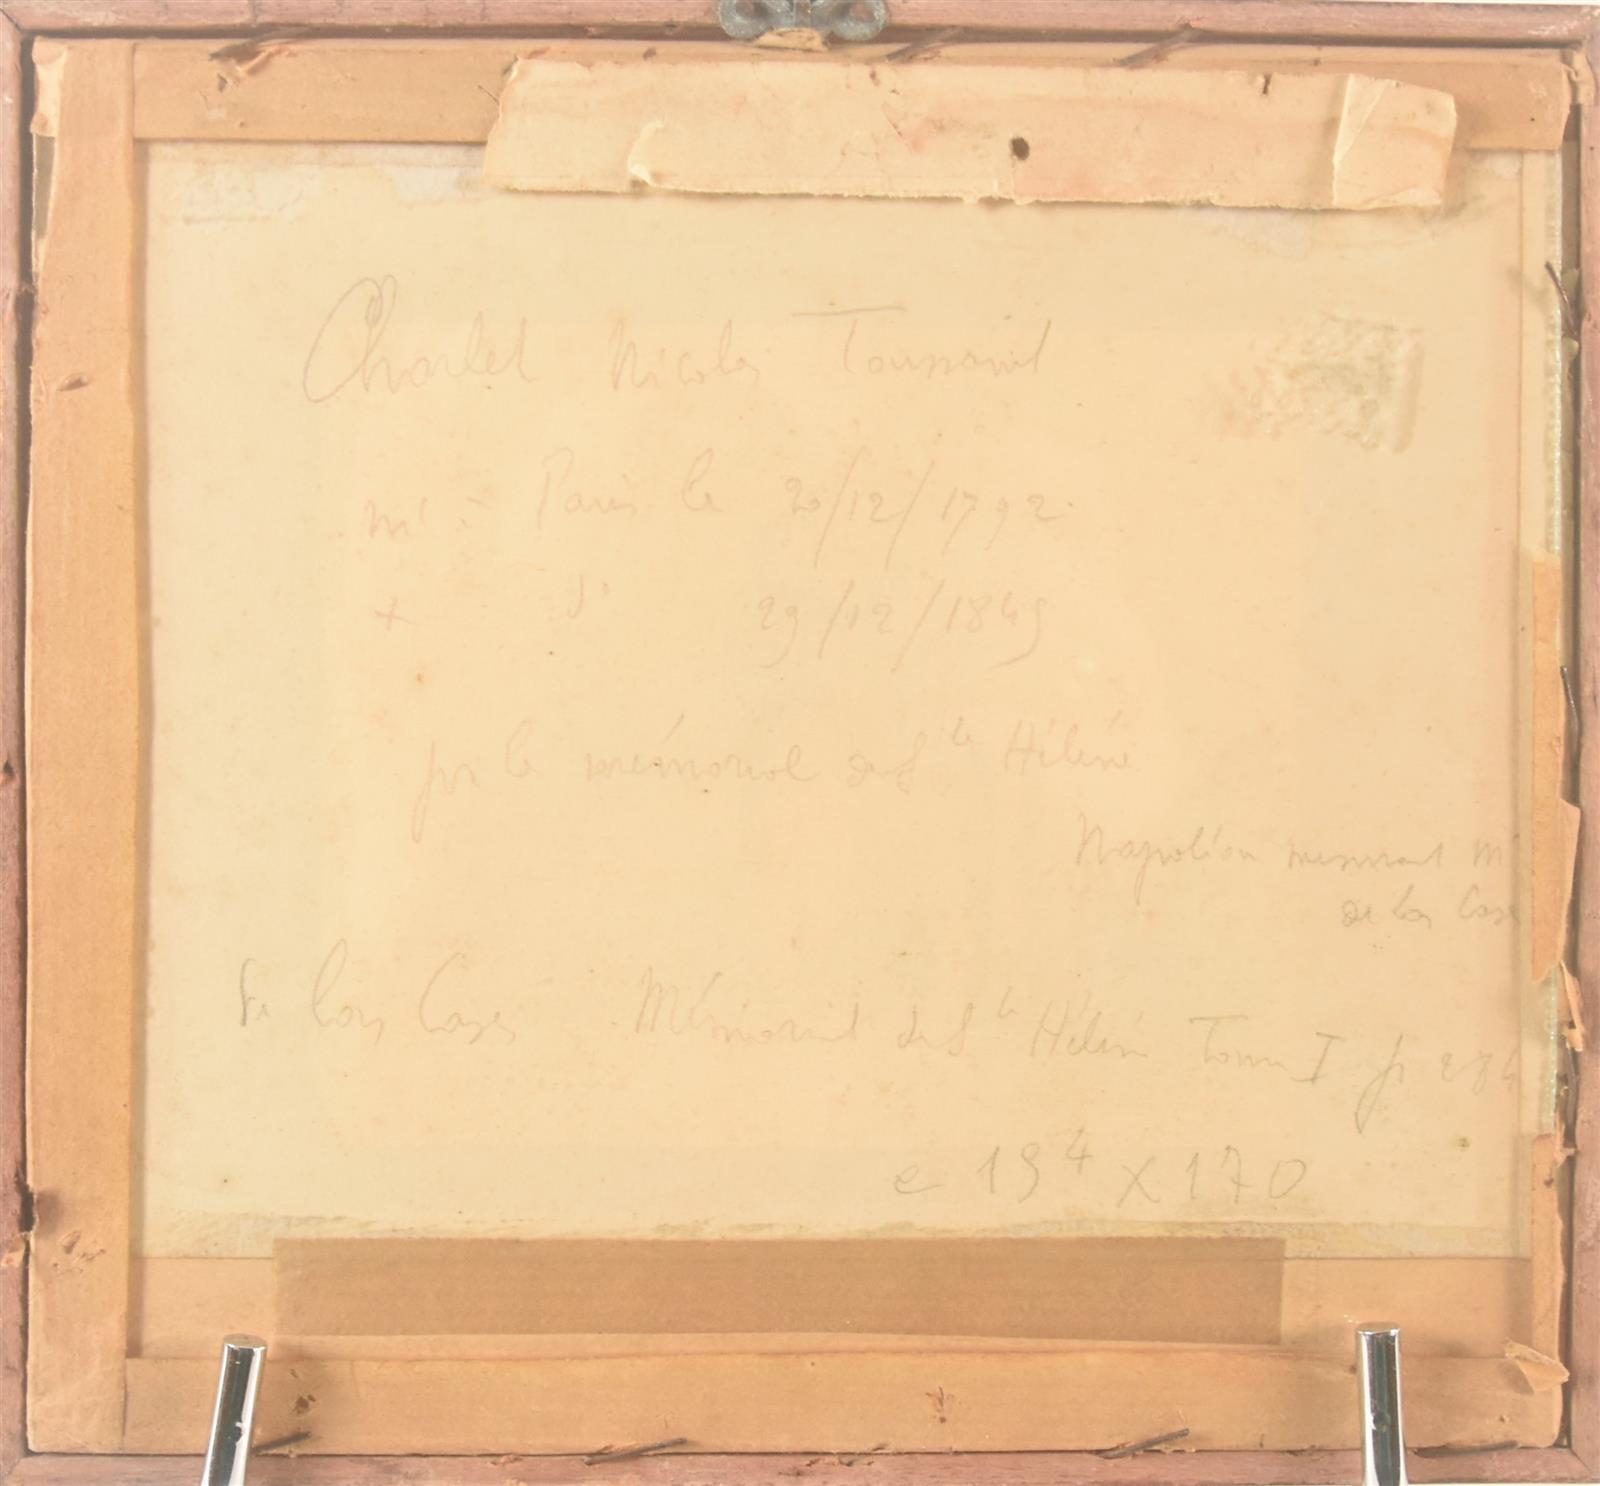 Charlet Nicolas Toussaint
né à Paris le 20/12/1792
+ d° 29/12/1845
pr le mémorial de Ste Hélène
Napoléon mesurant Mr
de las Case
De las Cases Mémorial de Ste Hélène Tome I p 284
e 194 x 170